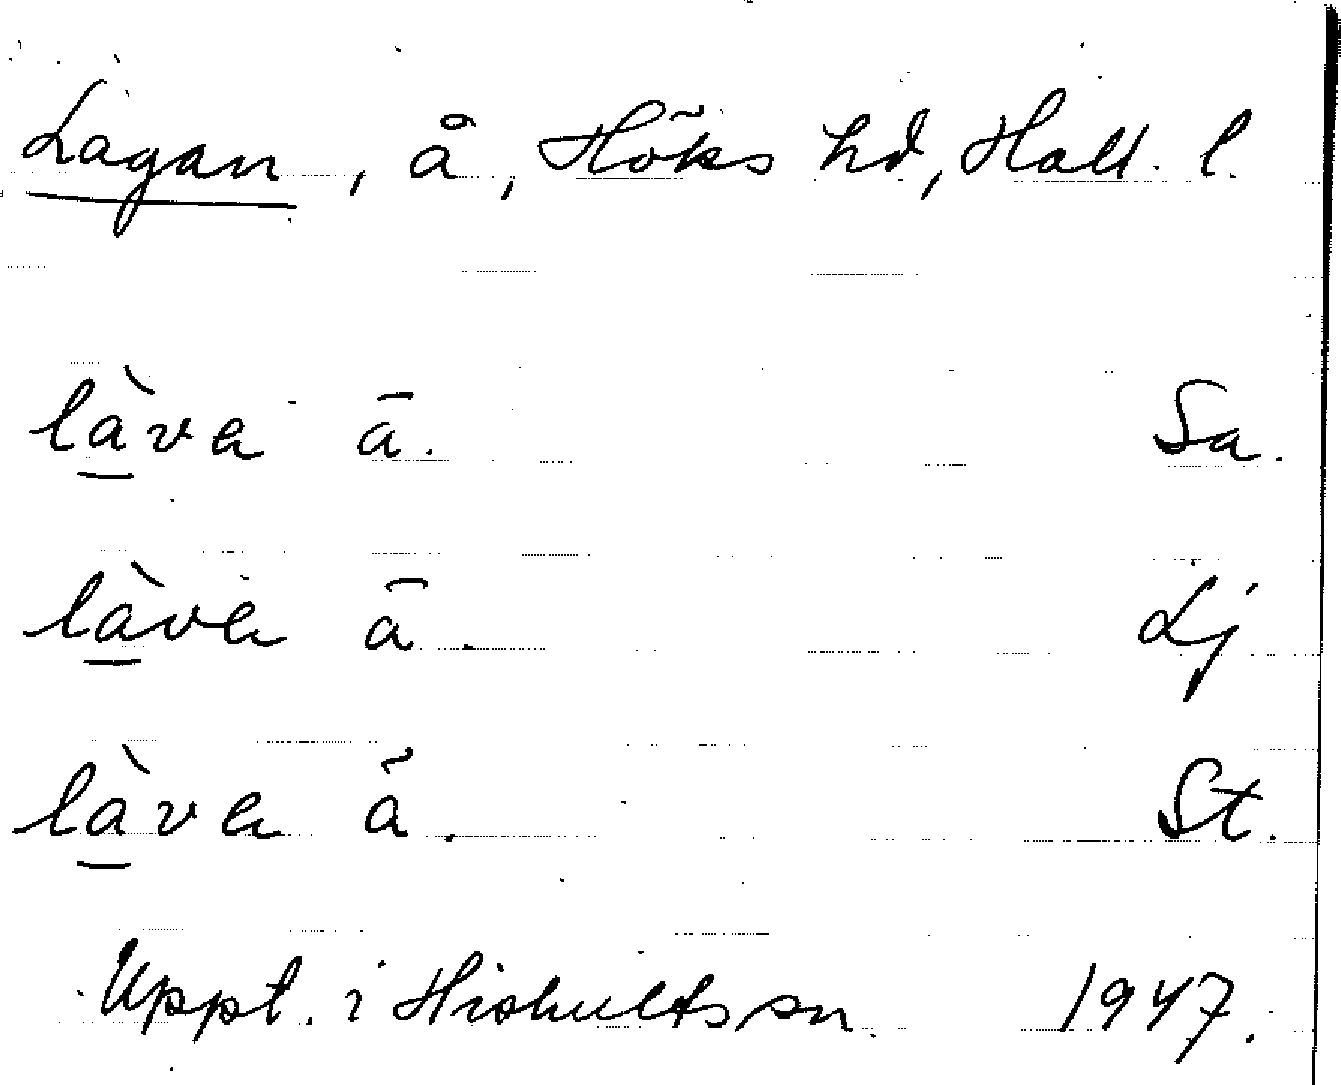 Lagan, å, Höks hd, Hall. l.
là̱va ā. Sa.
là̱va ā. Lj
là̱va ã. St.
Uppt. i Hishults sn 1947.